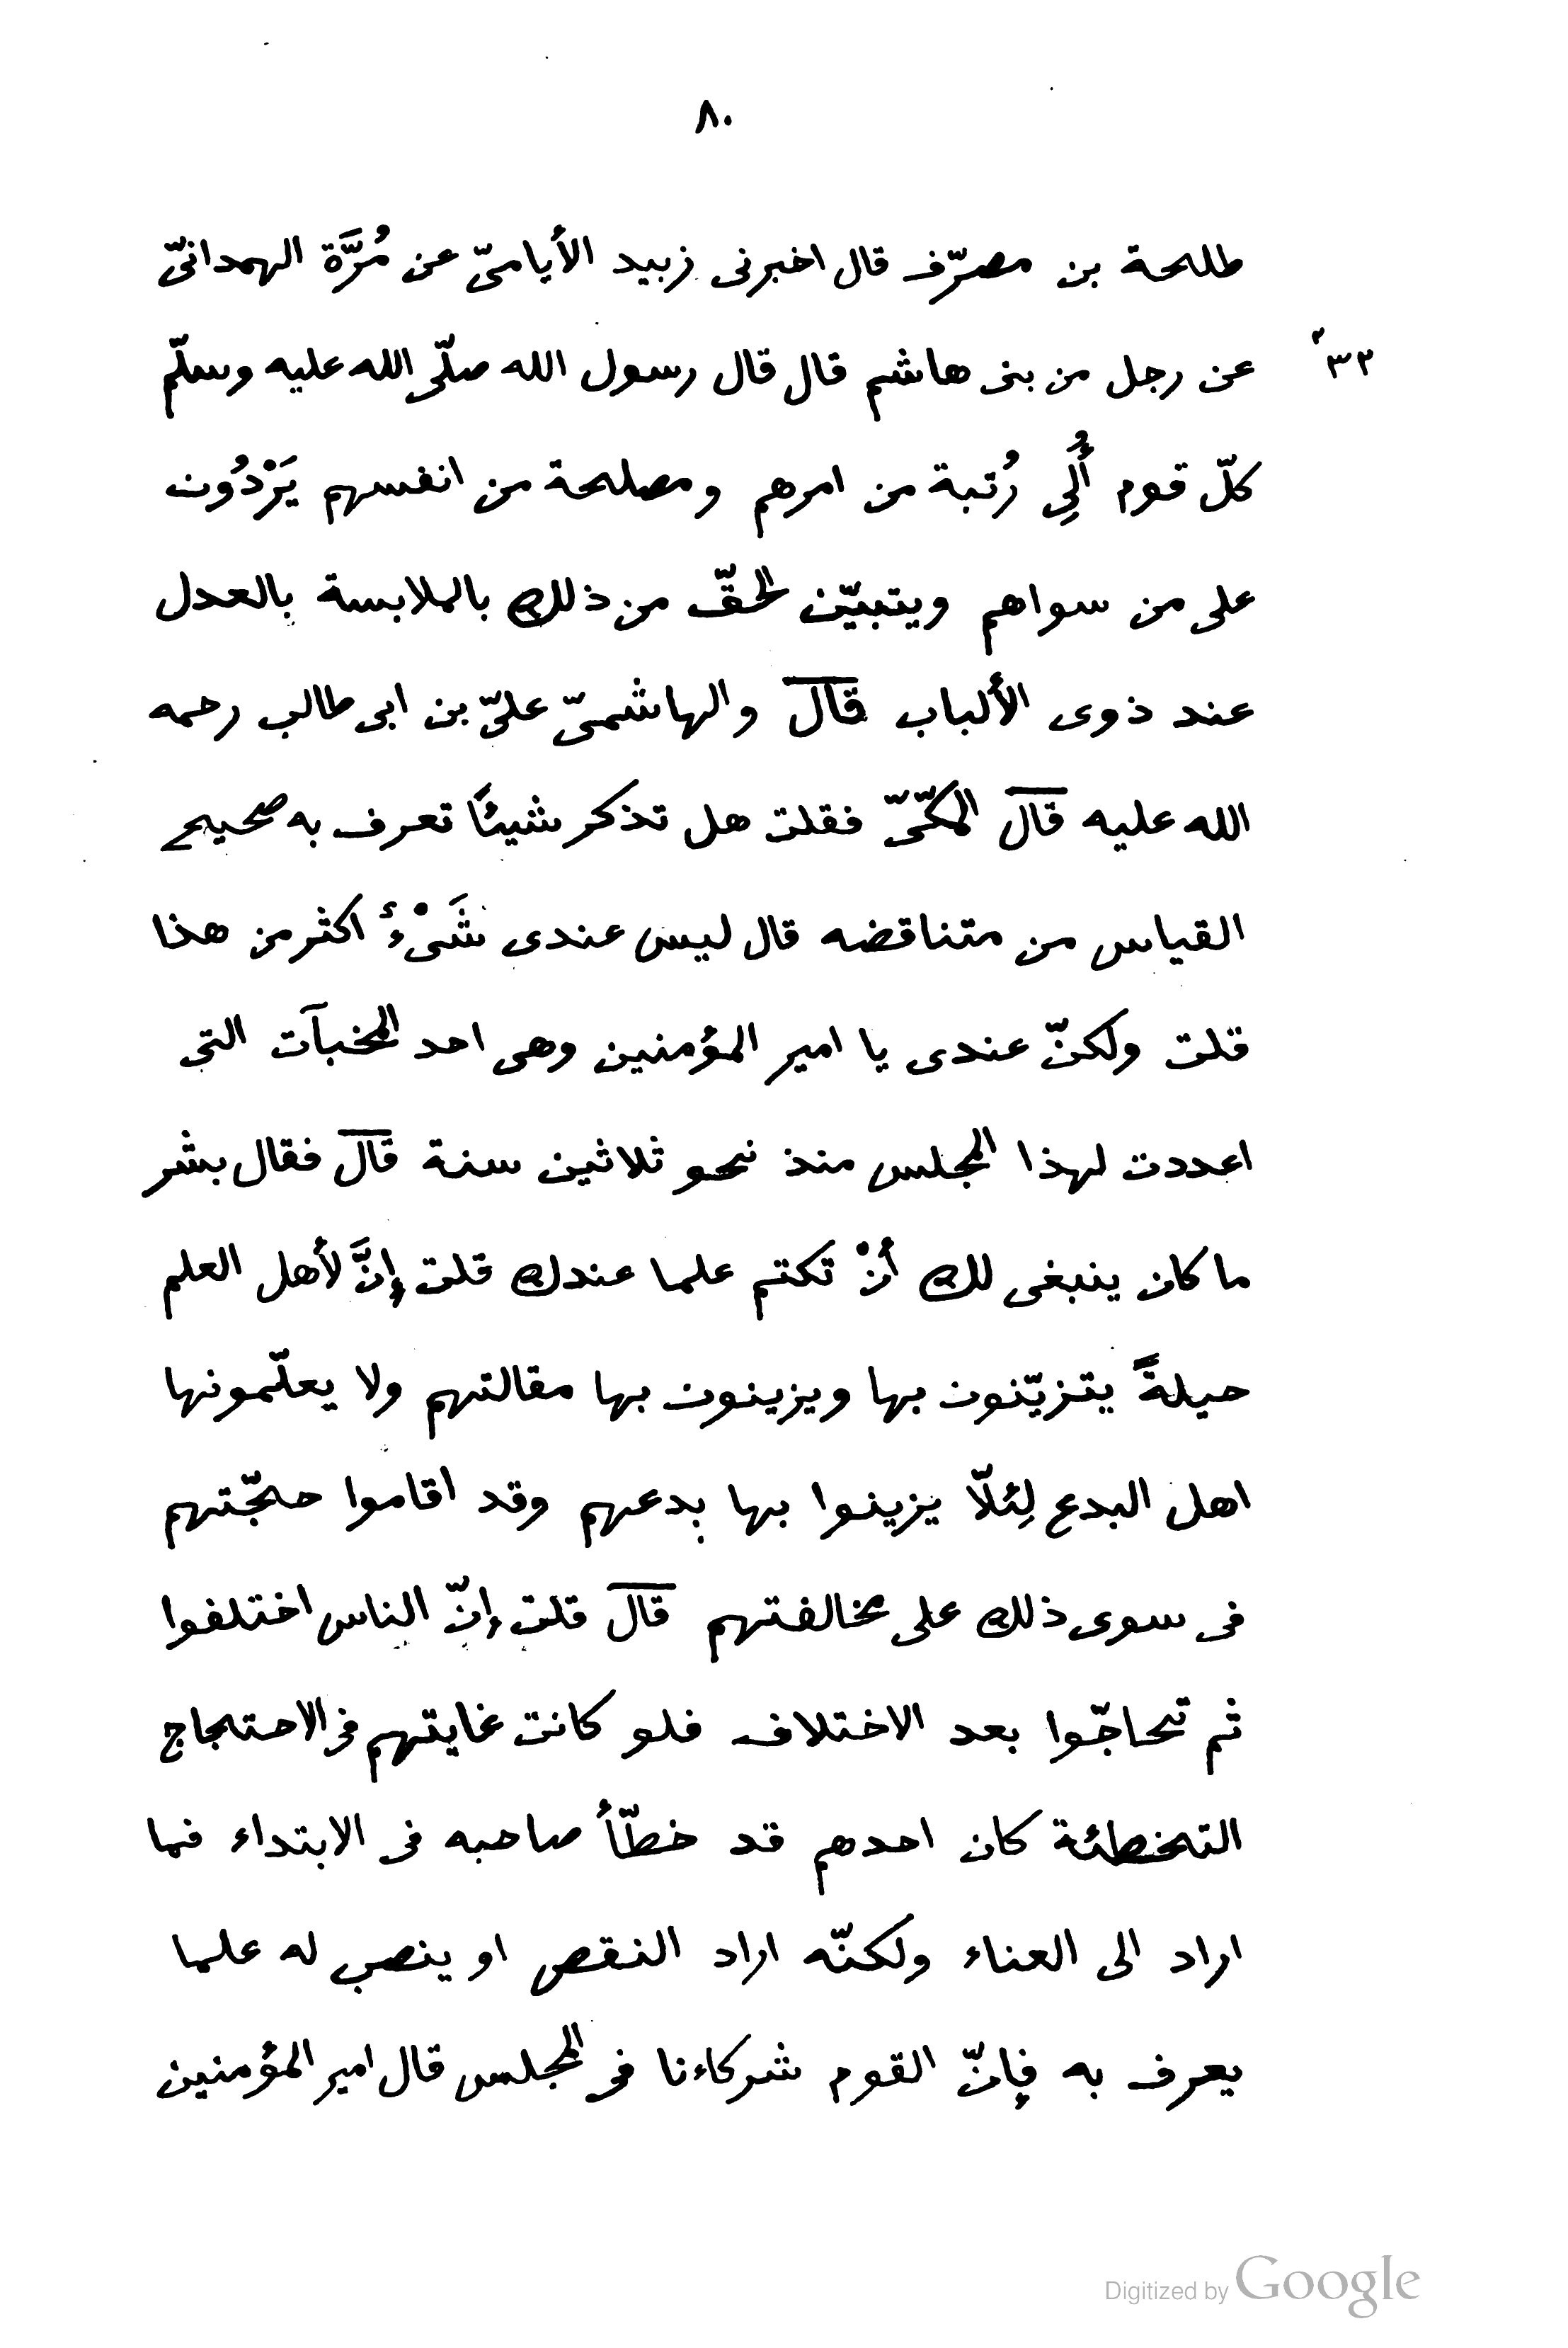 ٨٠
طلحة بن مصرّف قال اخبرنى زبيد الأيامىّ عن مُرَّة الهمدانىّ
عن رجل من بنى هاشم قال قال رسول الله صلّى الله عليه وسلّم
كلّ قوم أُلِى رُتبة من امرهم ومصلحة من انفسهم يَزْدُون
على من سواهم ويتبيّن لحقّ من ذلك بالملابسة بالعدل
عند ذوى الألباب قال والهاشمىّ علىّ بن ابى طالب رحمه
الله عليه قال المكّىّ فقلت هل تذكر شيئًا تعرف به صحيح
القياس من متناقضه قال ليس عندى شَىْءٌ اكثر من هذا
قلت ولكنّ عندى يا امير المؤمنين وهى احد المخبآت التى
اعددت لهذا المجلس منذ نحو ثلاثين سنة قال فقال بشر
ما كان ينبغى لك أنْ تكتم علما عندك قلت إنَّ لأهل العلم
حيلةً يتزيّنون بها ويزينون بها مقالتهم ولا يعلّمونها
اهل البدع لِئلّا يزينوا بها بدعهم وقد اقاموا حجّتهم
فى سوى ذلك على مخالفتهم قال قلت إنّ الناس اختلفوا
ثم تحاجّوا بعد الاختلاف فلو كانت غايتهم فى الاحتجاج
التخطئة كان احدهم قد خطّأ صاحبه فى الابتداء فما
اراد الى العناء ولكنّه اراد النقص او ينصب له علما
يعرف به فإنّ القوم شركاءنا فى المجلس قال امير المؤمنين
Digitized by Google